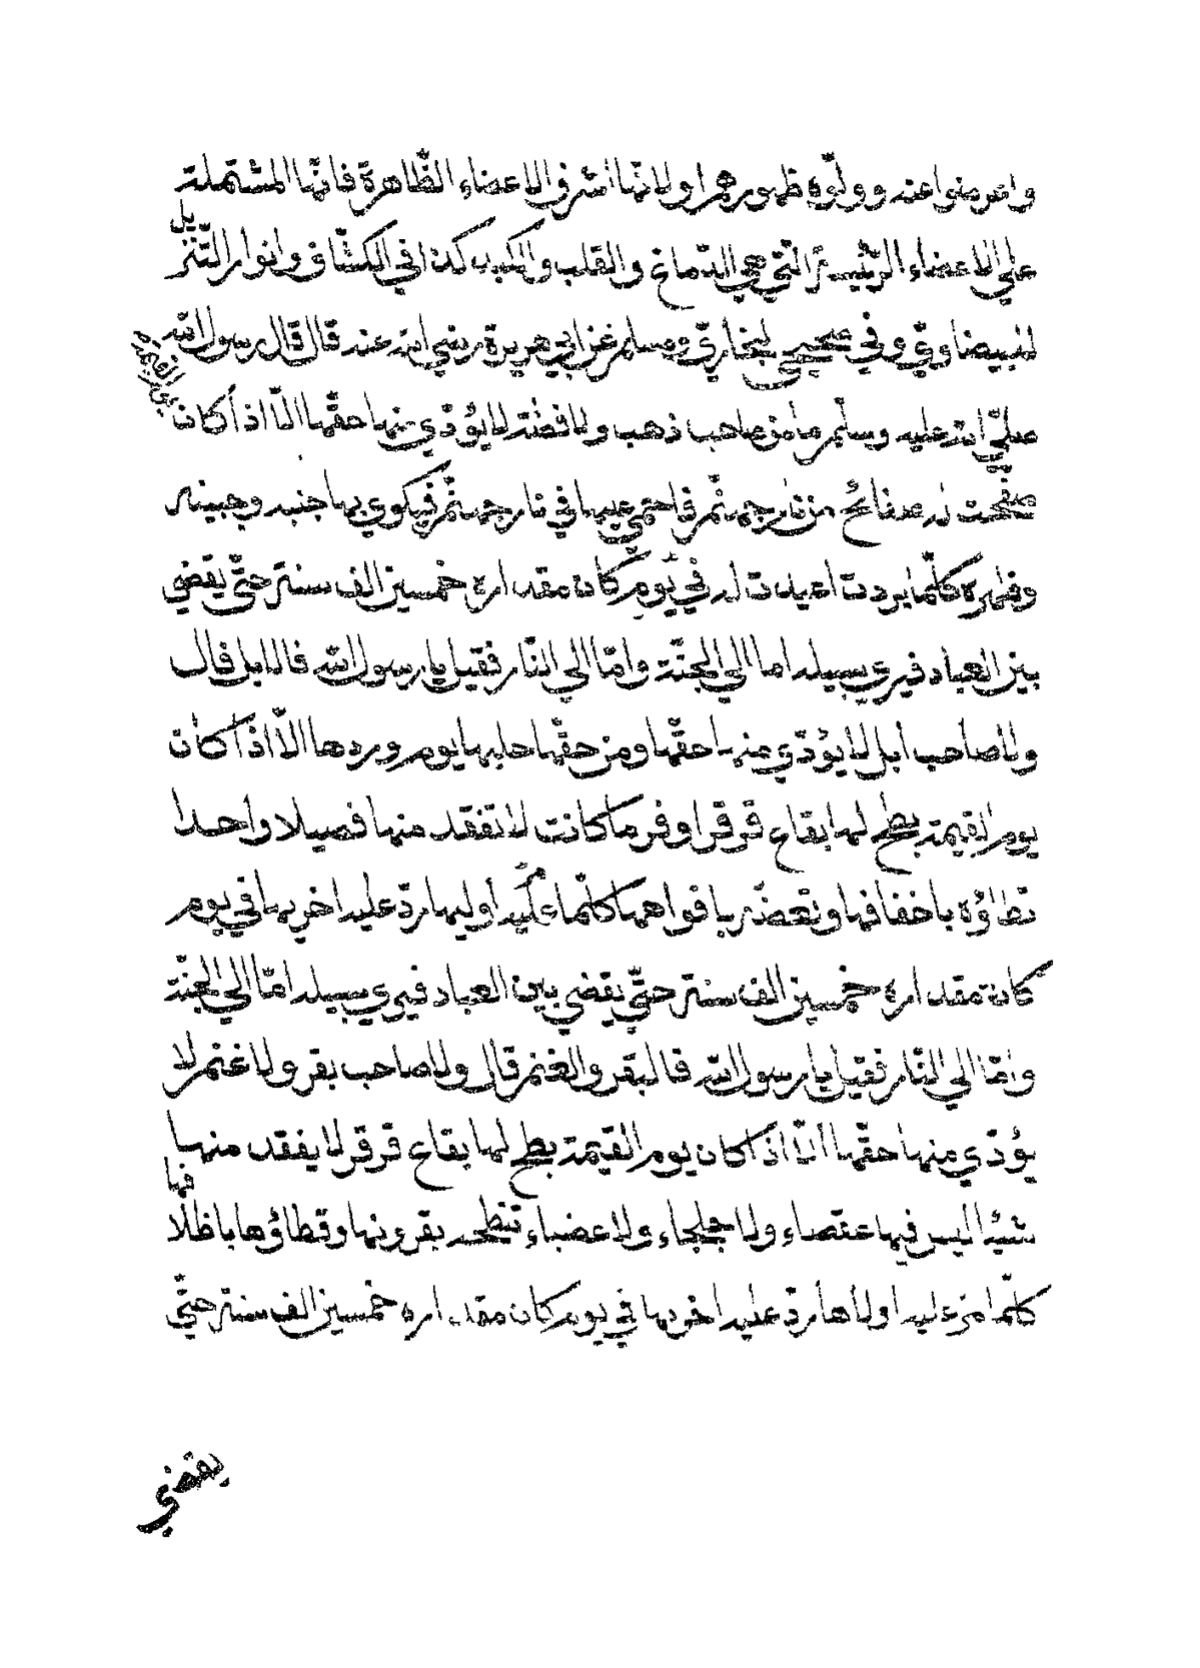 واعرضوا عنه وولّوه ظهورهم اولانّها اشرف الاعضاء الظّاهرة فانّها المشتملة
علي الاعضاء الرّئيسة الّتي هي الدّماغ والقلب والكبد كذا في الكشّاف وانوار التّنزيل
للبيضاوي وفي صحيحي البخاري ومسلم عن ابي هريرة رضي الله عنه قال قال رسول الله
صلّي الله عليه وسلّم ما من صاحب ذهب ولا فضّة لا يؤدّي منها حقّها الّا اذا كان
يوم القيمة
صفّحت له صفائح من نار جهنّم فاحمي عليها في نار جهنّم فيكوي بها جنبه وجبينه
وظهره كلّما بردت اعيدت له في يوم كان مقداره خمسين الف سنة حتّي يقضي
بين العباد فيري سبيله اما الي الجنّة وامّا الي النّار فقيل يا رسول الله فالابل قال
ولا صاحب ابل لا يؤدّي منها حقّها ومن حقّها حلبها يوم وردها الّا اذا كان
يوم القيمة بطح لها بقاع قرقر اوفر ما كانت لا تفقد منها فصيلا واحدا
تطاؤه باخفافها وتعضّه بافواهها كلّما مرّ عليه أوليها ردّ عليه اخريها في يوم
كان مقداره خمسين الف سنة حتّي يقضي بين العباد فيري سبيله امّا الي الجنّة
وامّا الي النّار فقيل يا رسول الله فالبقر والغنم قال ولا صاحب بقر ولا غنم لا
يؤدّي منها حقّها الّا اذا كان يوم القيمة بطح لها بقاع قرقر لا يفقد منها
شيئا ليس فيها عقصاء ولا جلجاء ولا عضباء تنطحه بقرونها وتطاؤها باظلافها
كلّما مرّ عليه اولاها ردّ عليه اخريها في يوم كان مقداره خمسين الف سنة حتّي
يقضي